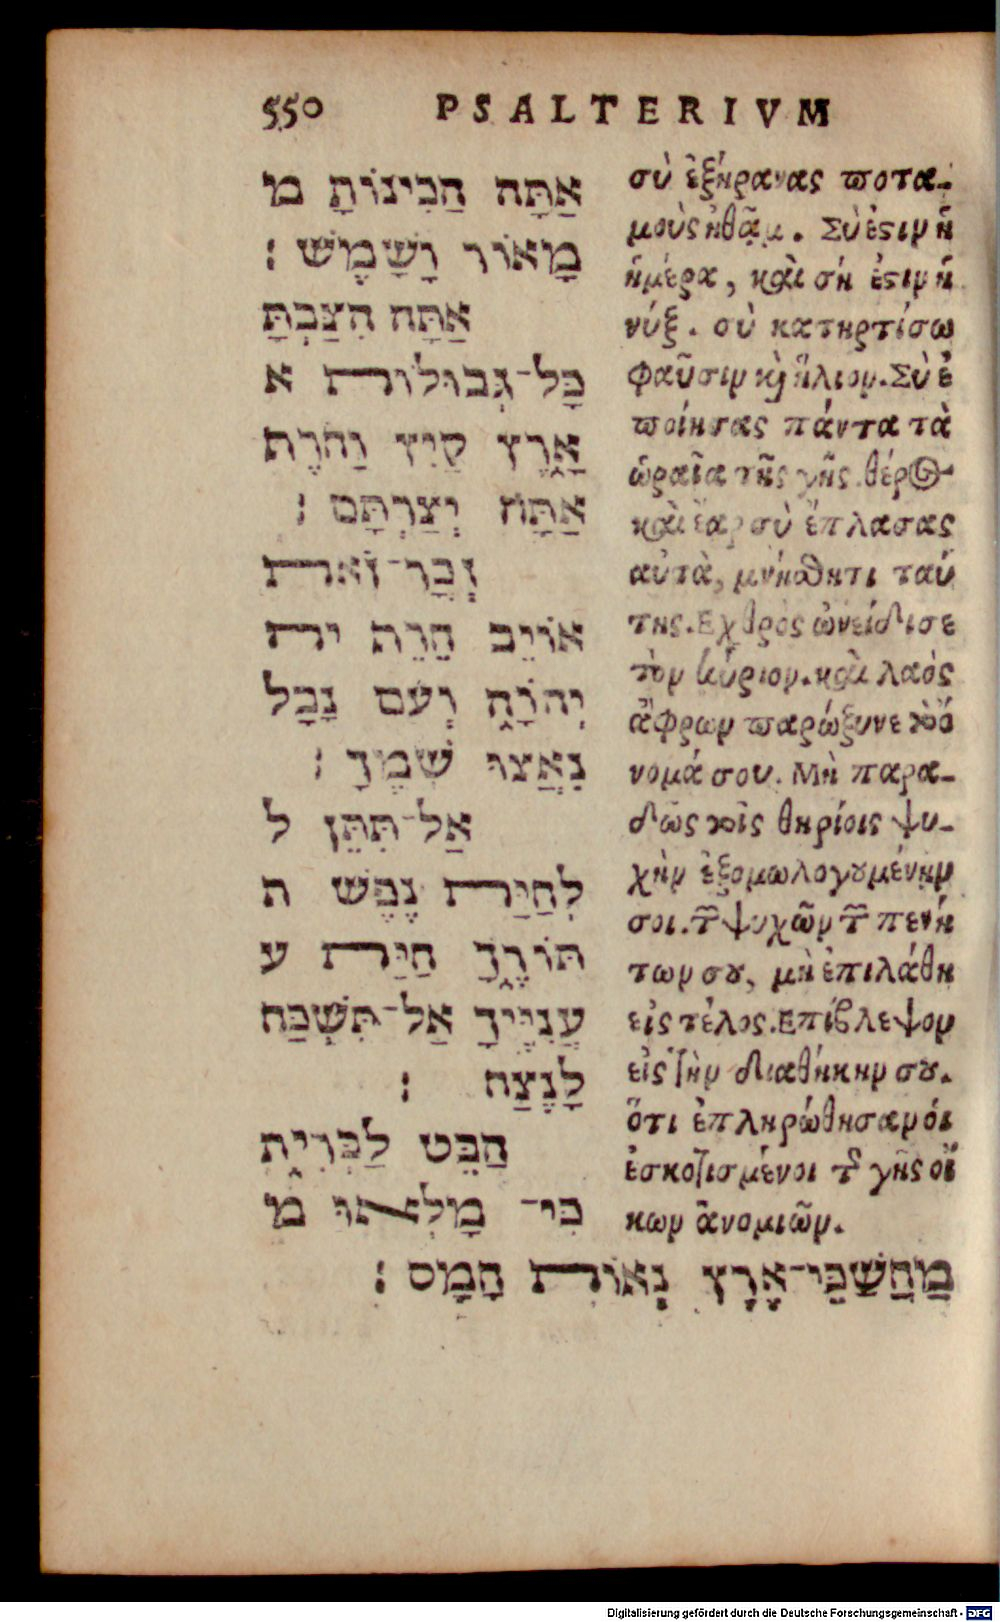 550 PSALTERIVM
אַתָּה הַכִינוֹתָ מ
מָאוֹר וָשָׁמֶשׁ :
אַתָּה הִצַּבְתָּ
כָּל־גְּבוּלוֹת א
אָרֶץ קַיִץ וָחֹרֶף
אַתָּה יְצַרְתָּם :
זְכָר־זֹאת
אוֹיֵב חֵרֵף יה
יְהוָֹה וְעַם נָבָל
נִאֲצוּ שְׁמֶךָ :
אַל־תִּתֵּן ל
לְחַיַּת נֶפֶשׁ ת
תּוֹרֶךָ חַיַּת ע
עֲנִיֶּיךָ אַל־תִּשְׁכַּח
לָנֶצַח :
הַבֵּט לַבְּרִית
כִּי־ מָלְאוּ מ
מַחֲשַׁכֵּי־אֶרֶץ נְאוֹת חָמָס :
σὺ ἐξήρανας ποτα-
μοὺς ἠθάμ. Σὺ ἐστιν ἡ
ἡμέρα, καὶ σή ἐστιν ἡ
νύξ. σὺ κατηρτίσω
φαῦσιν καὶ ἥλιον. Σὺ ἐ
ποίησας πάντα τὰ
ὡραῖα τῆς γῆς. θέρος
καὶ ἔαρ σὺ ἔπλασας
αὐτὰ, μνήσθητι ταύ
της. Εχθρὸς ὠνείδισε
τὸν κύριον. καὶ λαὸς
ἄφρων παρώξυνε τὸ ὄ
νομά σου. Μὴ παρα-
δῷς τοῖς θηρίοις ψυ-
χὴν ἐξομωλογουμένην
σοι. τῶν ψυχῶν τῶν πενή
των σου, μὴ ἐπιλάθῃ
εἰς τέλος. Επίβλεψον
εἰς τὴν διαθήκην σου.
ὅτι ἐπληρώθησαν οἱ
ἐσκοτισμένοι τῆς γῆς οἴ
κων ἀνομιῶν.
Digitalisierung gefördert durch die Deutsche Forschungsgemeinschaft - DFG